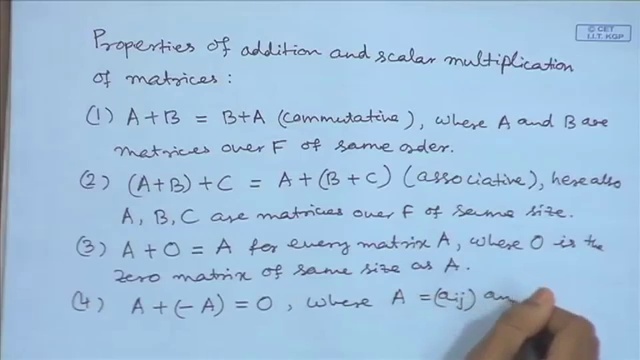 © CET
I.I.T. KGP
Properties of addition and scalar multiplication
of matrices :
(1) A+B = B+A (commutative), where A and B are
matrices over F of same order.
(2) (A+B)+C = A+(B+C) (associative), here also
A, B, C are matrices over F of same size.
(3) A+O = A for every matrix A, where O is the
zero matrix of same size as A.
(4) A+(-A) = O, where A = (aij)